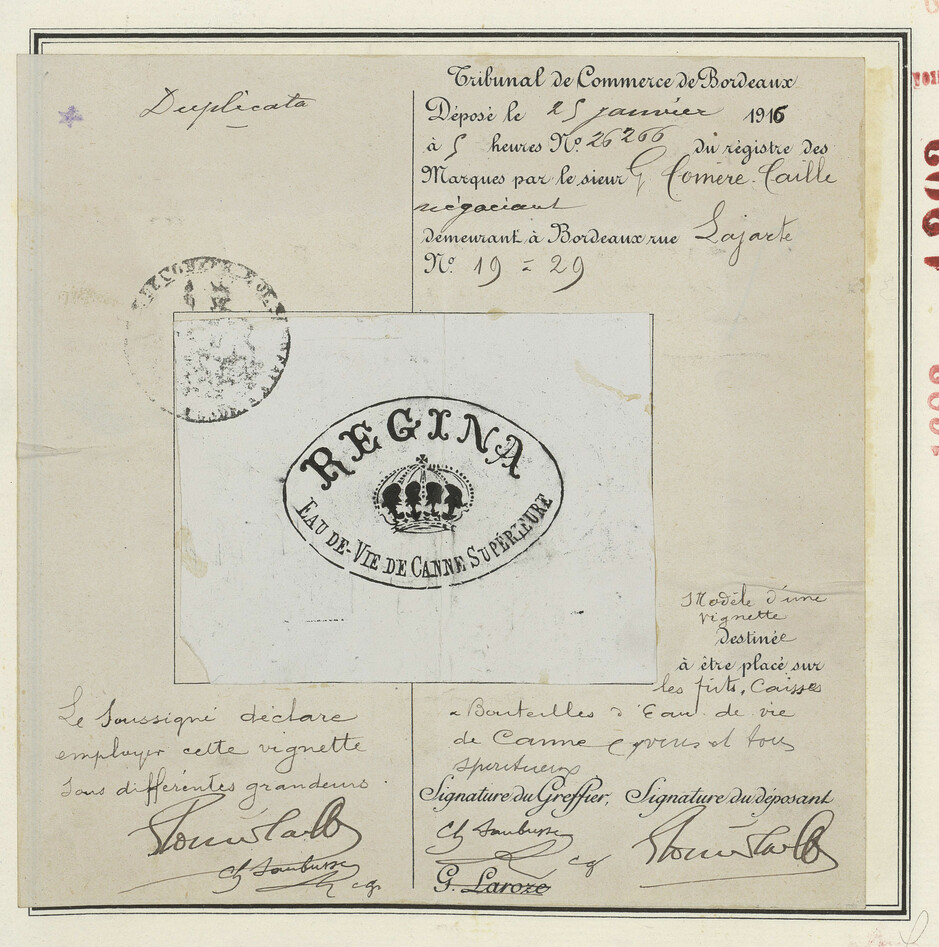 Duplicata
Tribunal de Commerce de Bordeaux
Déposé le 25 janvier 1916
à 5 heures Nº 26266 du régistre des
Marques par le sieur G Comère-Caille
négociant
demeurant à Bordeaux rue Lajarte
Nº 19 = 29
REGINA
EAU DE-VIE DE CANNE SUPÉRIEURE
Modèle d'une
vignette
destinée
à être placé sur
les fûts, Caisses
Bouteilles d'Eau de vie
de Canne et tous
spiritueux
Le Soussigné déclare
employer cette vignette
sous différentes grandeurs.
Signature du Greffier, Signature du déposant
G. Laroze